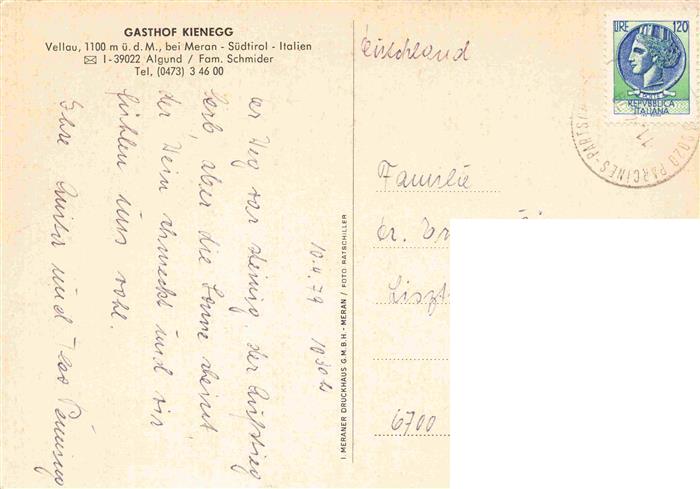 GASTHOF KIENEGG
Vellau, 1100 m ü. d. M., bei Meran - Südtirol - Italien
I - 39022 Algund / Fam. Schmider
Tel. (0473) 3 46 00
10.4.79 1030 h
er Weg war steinig, der Aufstieg
derb, aber die Sonne scheint
der Wein schmeckt und wir
fühlen uns wohl.
und
I. MERANER DRUCKHAUS G.M.B.H. - MERAN / FOTO RATSCHILLER
eutschland
LIRE 120
REPVBBLICA
ITALIANA
PARCINES-PART
Familie
Dr.
Liszt
6700